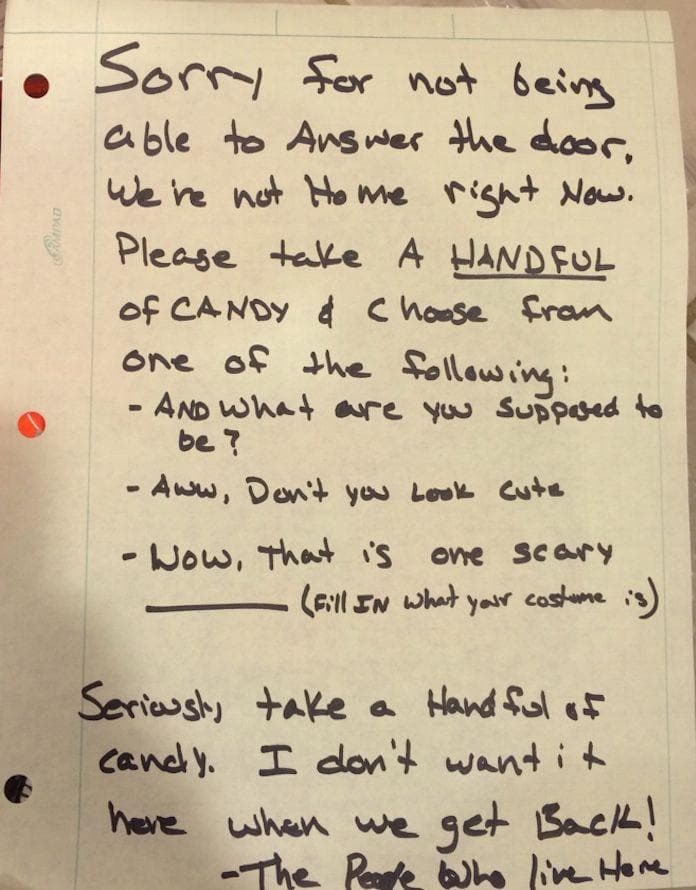 Sorry for not being
able to Answer the door.
We're not Home right Now.
Please take A HANDFUL
of CANDY & Choose from
one of the following:
- AND What are you Supposed to
be?
- Aww, Don't you Look Cute
- Wow, That is one scary
________ (Fill IN what your costume is)
Seriously take a Handful of
candy. I don't want it
here when we get Back!
-The People Who live Here
AMPAD